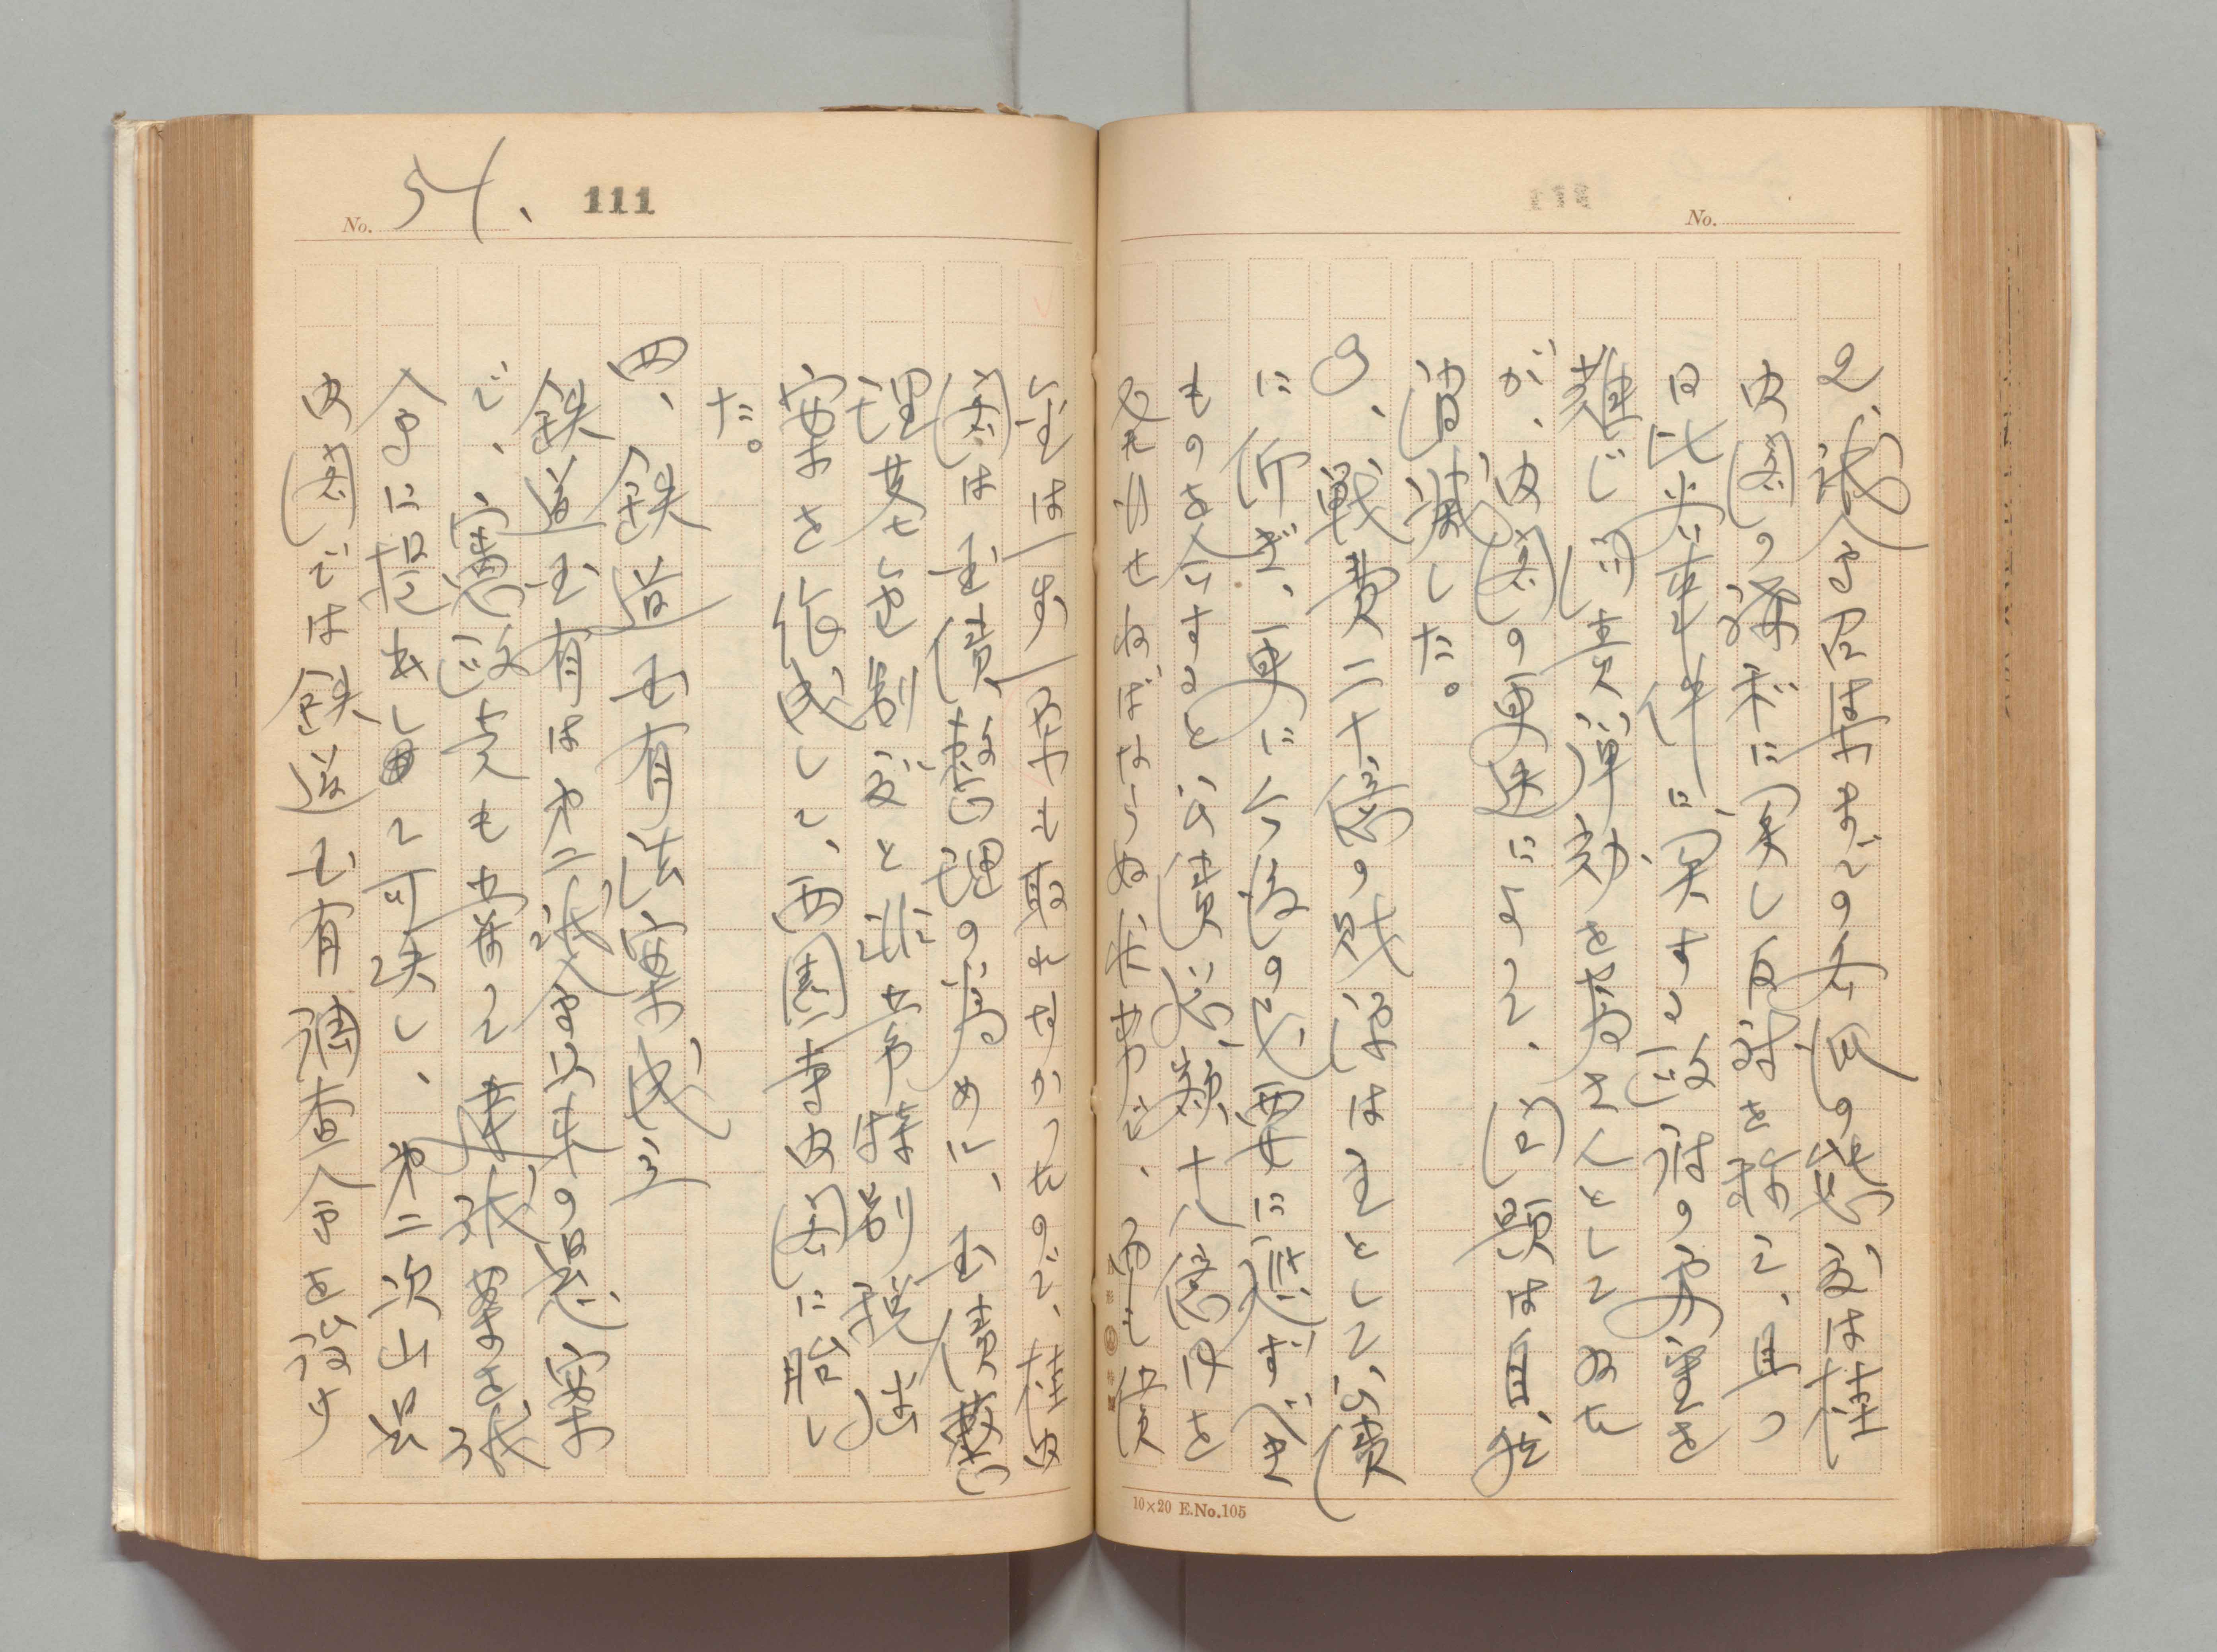 No.
2、議会召集までの各派の態度は桂
内閣の講和に関し反対を称へ、且つ
日比谷事件に関する政府の失墜を
難じ問責弾劾を為さんとしてゐた
が、内閣の更迭によつて、問題は自然
消滅した。
3、戦費二十億の財源は主として公債
に仰ぎ、更に今後の必要に応ずべき
ものを合すると公債総額十八億円を
見せねばならぬ形勢で、而も償
10×20 E.No.105
No. 54、 111
金は一文も取れなかつたので、桂内
閣は国債整理の為めに、国債整
理基金特別会と非常特別税法
案を作成して、西園寺内閣に貽し
た。
四、鉄道国有法案成立
鉄道国有は第二議会以来の懸案
で、憲政党も曽つて建議案を議
会に提出して可決し、第二次山県
内閣では鉄道国有調査会を設け